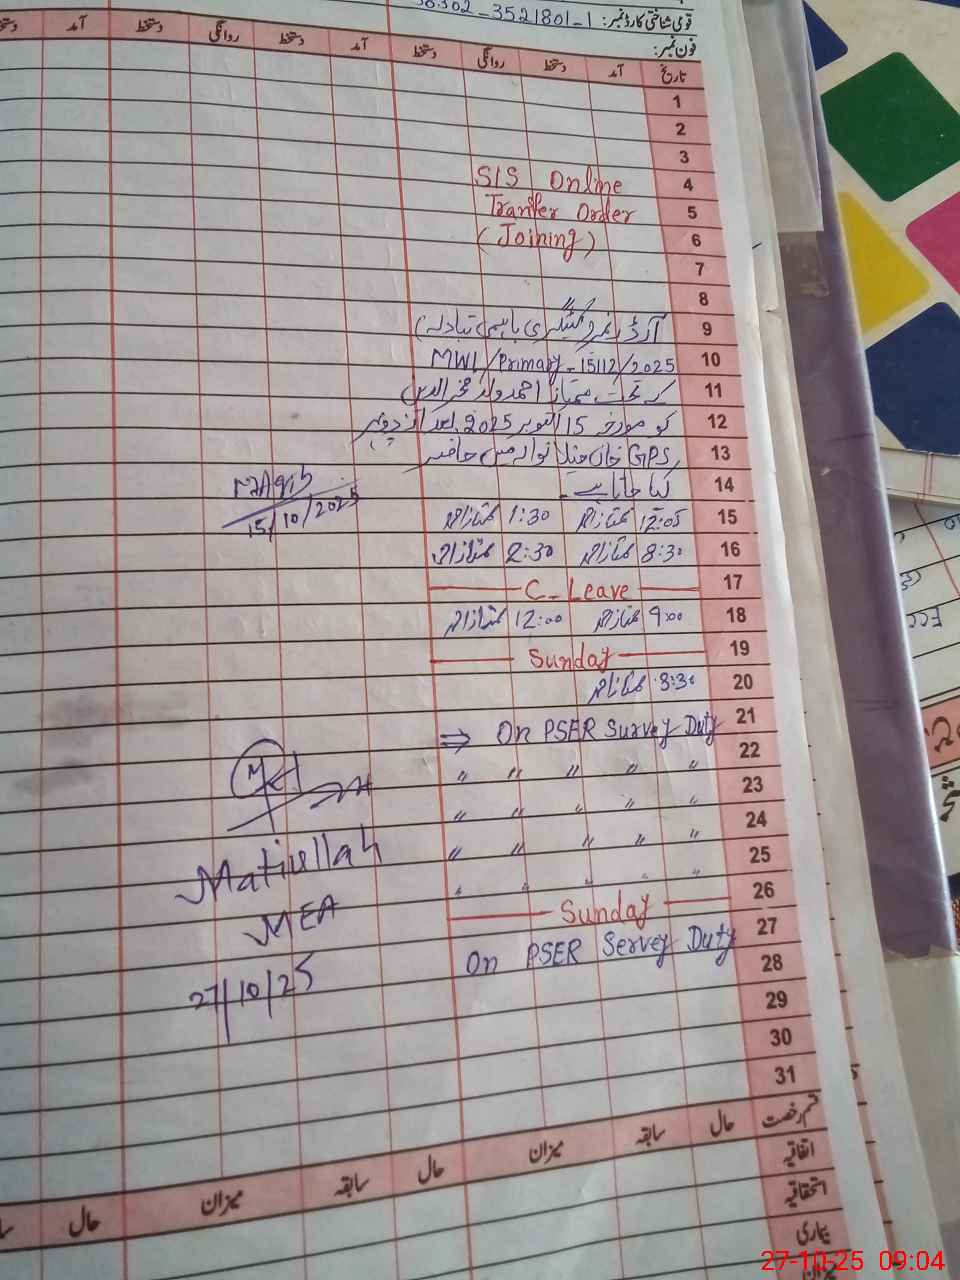 قومی شناختی کارڈ نمبر: 38302-3521801-1
فون نمبر:
تاریخ آمد دستخط روانگی دستخط آمد دستخط روانگی دستخط آمد
1
2
3
4 SIS Online
5 Tranfer Order
6 (Joining)
7
8
9 آرڈر نمبر کیٹیگری باہمی تبادلہ)
10 MWL/Primary-15112/2025
11 کے تحت ممتاز احمد ولد فخر الدین
12 کو مورخہ 15 اکتوبر 2025 بعد از دوپہر
13 GPS خان میں حاضر
14 کیا جاتا ہے۔
15 12:05 ممتاز احمد 1:30 ممتاز احمد
15/10/2025
16 8:30 ممتاز احمد 2:30 ممتاز احمد
17 C-Leave
18 9:00 ممتاز احمد 12:00 ممتاز احمد
19 Sunday
20 8:30 ممتاز احمد
21 ⇒ On PSER Survey Duty
22 " " " " "
23 " " " " "
24 " " " " "
25 " " " " "
26 Sunday
27 On PSER Servey Duty
28
29
30
31
Matiullah
MEA
27/10/25
قسم رخصت حال سابقہ میزان حال سابقہ میزان حال
اتفاقیہ
استحقاقیہ
بیماری
میزان
27-10-25 09:04